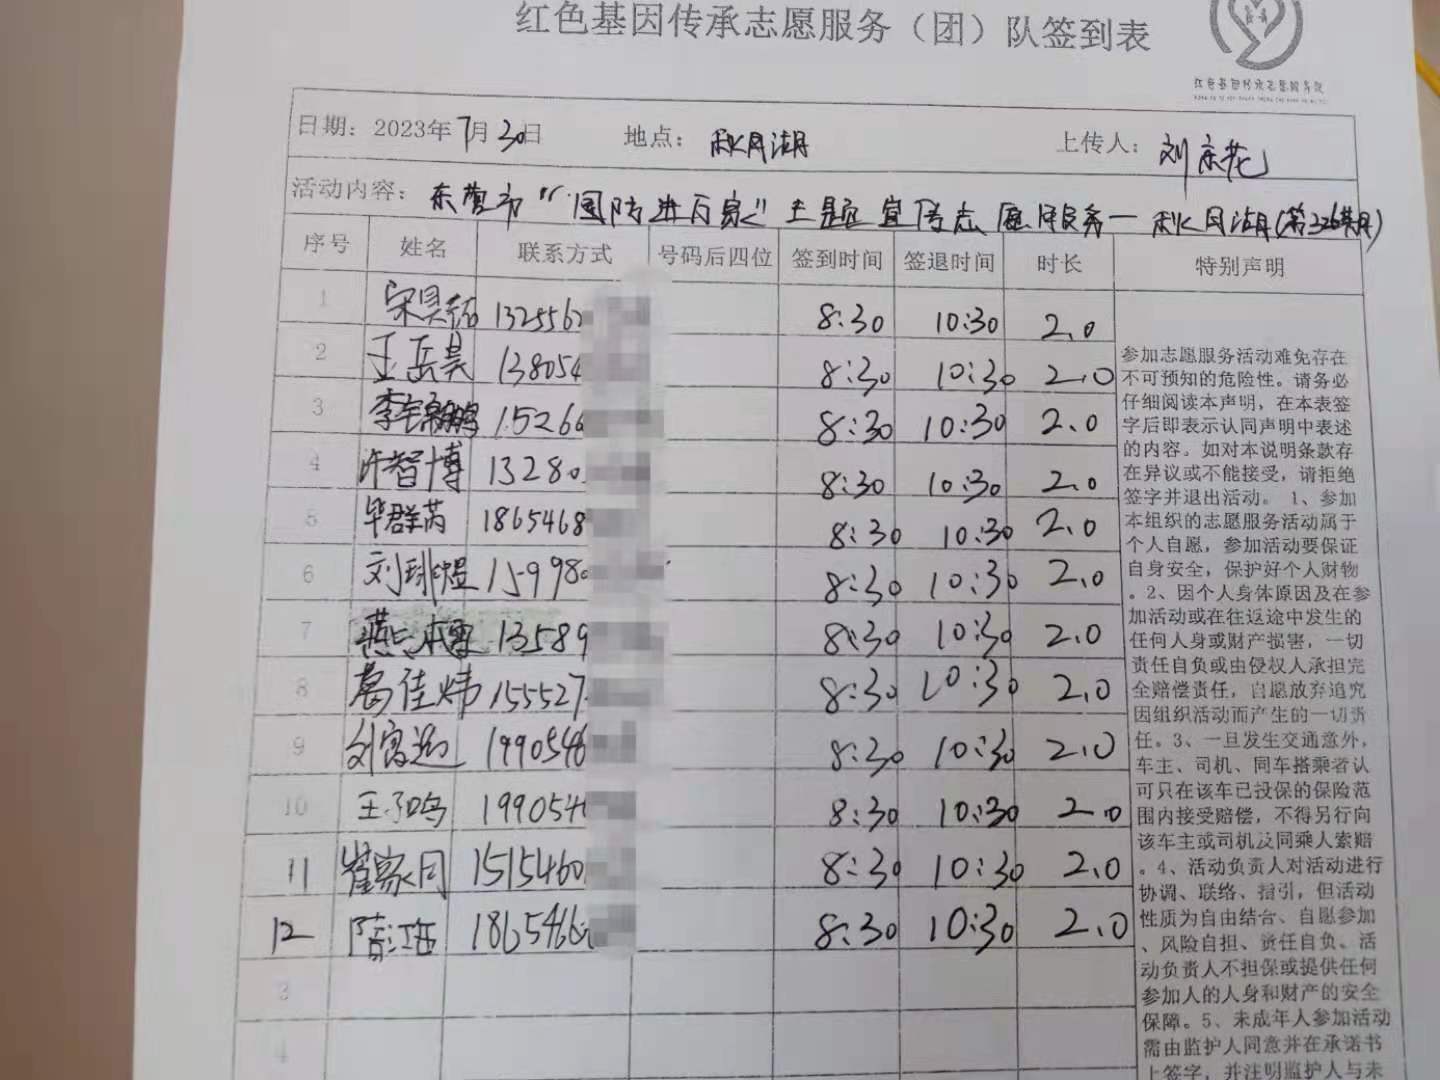 红色基因传承志愿服务（团）队签到表
日期：2023年7月30日 地点：秋月湖 上传人：刘京花
活动内容：东营市“国防进万家”主题宣传志愿服务—秋月湖(第326期)
序号 姓名 联系方式 号码后四位 签到时间 签退时间 时长 特别声明
1 宋昊 1325562 8:30 10:30 2.0
2 王岳昊 138054 8:30 10:30 2.0
3 15266 8:30 10:30 2.0
4 许智博 13280 8:30 10:30 2.0
5 毕群芮 1865468 8:30 10:30 2.0
6 刘 煜 159980 8:30 10:30 2.0
7 燕 13589 8:30 10:30 2.0
8 葛佳炜 155527 8:30 10:30 2.0
9 刘 1990546 8:30 10:30 2.0
10 王 鸣 1990546 8:30 10:30 2.0
11 崔家同 1515460 8:30 10:30 2.0
12 隋 1865466 8:30 10:30 2.0
3
4
参加志愿服务活动难免存在
不可预知的危险性。请务必
仔细阅读本声明，在本表签
字后即表示认同声明中表述
的内容。如对本说明条款存
在异议或不能接受，请拒绝
签字并退出活动。1、参加
本组织的志愿服务活动属于
个人自愿，参加活动要保证
自身安全，保护好个人财物
。2、因个人身体原因及在参
加活动或在往返途中发生的
任何人身或财产损害，一切
责任自负或由侵权人承担完
全赔偿责任，自愿放弃追究
因组织活动而产生的一切责
任。3、一旦发生交通意外，
车主、司机、同车搭乘者认
可只在该车已投保的保险范
围内接受赔偿，不得另行向
该车主或司机及同乘人索赔
。4、活动负责人对活动进行
协调、联络、指引，但活动
性质为自由结合、自愿参加
、风险自担、责任自负、活
动负责人不担保或提供任何
参加人的人身和财产的安全
保障。5、未成年人参加活动
需由监护人同意并在承诺书
上签字，并注明监护人与未